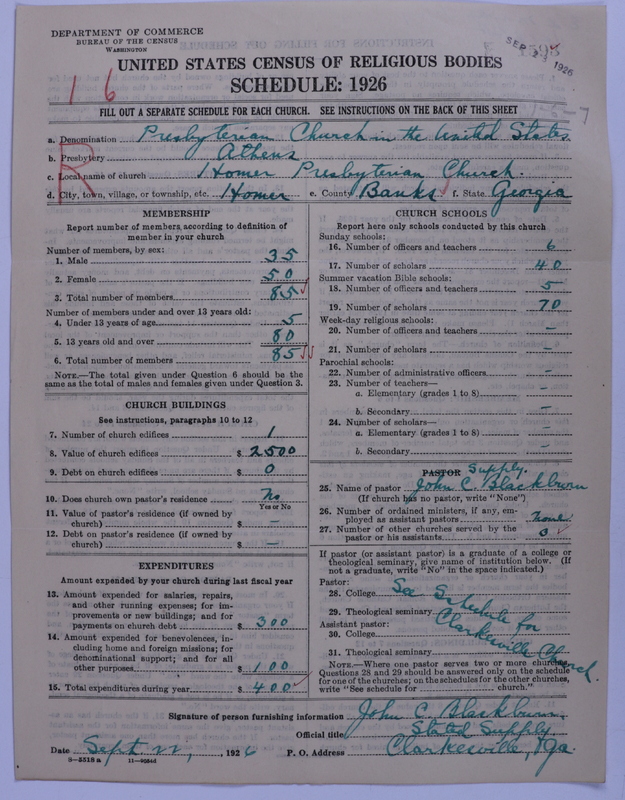 DEPARTMENT OF COMMERCE
BUREAU OF THE CENSUS
WASHINGTON
SEP 2 1926
UNITED STATES CENSUS OF RELIGIOUS BODIES
SCHEDULE: 1926
16
FILL OUT A SEPARATE SCHEDULE FOR EACH CHURCH. SEE INSTRUCTIONS ON THE BACK OF THIS SHEET
R
a. Denomination Presbyterian Church in the United States
b. Presbytery Athens
c. Local name of church Homer Presbyterian Church.
d. City, town, village, or township, etc. Homer e. County Banks f. State Georgia
MEMBERSHIP
Report number of members according to definition of
member in your church
Number of members, by sex:
1. Male 35
2. Female 50
3. Total number of members 85
Number of members under and over 13 years old:
4. Under 13 years of age 5
5. 13 years old and over 80
6. Total number of members 85
NOTE.—The total given under Question 6 should be the
same as the total of males and females given under Question 3.
CHURCH BUILDINGS
See instructions, paragraphs 10 to 12
7. Number of church edifices 1
8. Value of church edifices $ 2500
9. Debt on church edifices $ 0
10. Does church own pastor's residence No
Yes or No
11. Value of pastor's residence (if owned by
church) $ —
12. Debt on pastor's residence (if owned by
church) $ —
EXPENDITURES
Amount expended by your church during last fiscal year
13. Amount expended for salaries, repairs,
and other running expenses; for im-
provements or new buildings; and for
payments on church debt $ 300
14. Amount expended for benevolences, in-
cluding home and foreign missions; for
denominational support; and for all
other purposes $ 100
15. Total expenditures during year $ 400
CHURCH SCHOOLS
Report here only schools conducted by this church
Sunday schools:
16. Number of officers and teachers 6
17. Number of scholars 40
Summer vacation Bible schools:
18. Number of officers and teachers 5
19. Number of scholars 70
Week-day religious schools:
20. Number of officers and teachers —
21. Number of scholars —
Parochial schools:
22. Number of administrative officers —
23. Number of teachers—
a. Elementary (grades 1 to 8) —
b. Secondary —
24. Number of scholars—
a. Elementary (grades 1 to 8) —
b. Secondary —
PASTOR Supply.
25. Name of pastor John C. Blackburn
(If church has no pastor, write "None")
26. Number of ordained ministers, if any, em-
ployed as assistant pastors none
27. Number of other churches served by the
pastor or his assistants
If pastor (or assistant pastor) is a graduate of a college or
theological seminary, give name of institution below. (If
not a graduate, write "No" in the space indicated.)
Pastor:
28. College See Schedule for
29. Theological seminary Clarkesville Church.
Assistant pastor:
30. College
31. Theological seminary
NOTE.—Where one pastor serves two or more churches
Questions 28 and 29 should be answered only on the schedule
for one of the churches; on the schedules for the other churches,
write "See schedule for church."
Signature of person furnishing information John C. Blackburn,
Official title Stated Supply
Date Sept. 22, 1926 P. O. Address Clarkesville, Ga.
8—5518 a 11—9054d